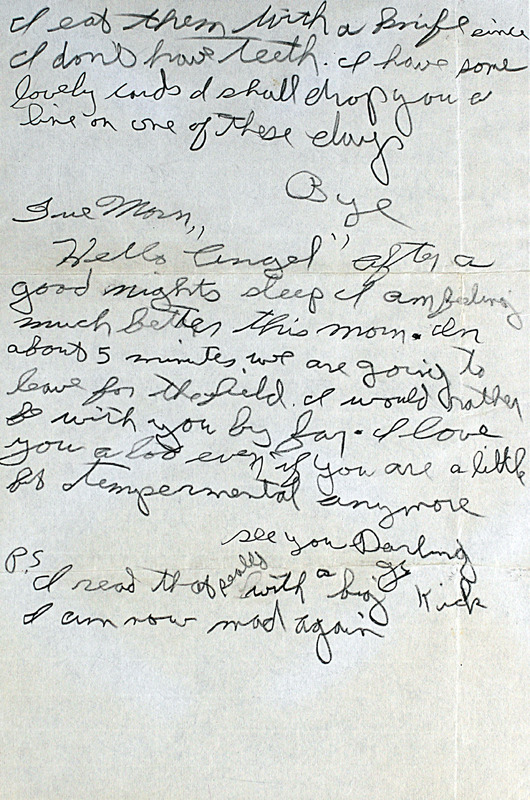 I eat them with a knife since
I don't have teeth. I have some
lovely cards I shall drop you a
line on one of these days
Bye
Tue Morn,,
Hello "Angel" after a
good nights sleep I am feeling
much better this morn. In
about 5 minutes we are going to
leave for the field. I would rather
be with you by far. I love
you a lot even if you are a little
bit tempermental anymore
see you Darling
P.S.
I read that with a big Kick
I am now mad again